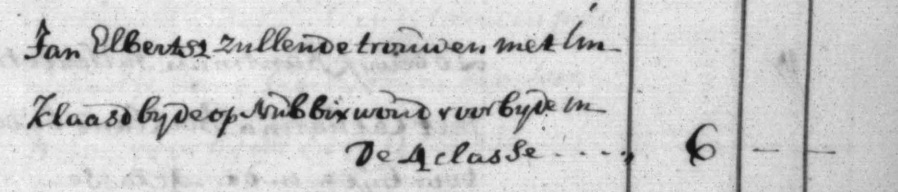 Jan Elbertsz zullende trouwen met lin
Klaasd byde op Nubbixwoud voor byde in
De 4 classe - - - - , 6 - -